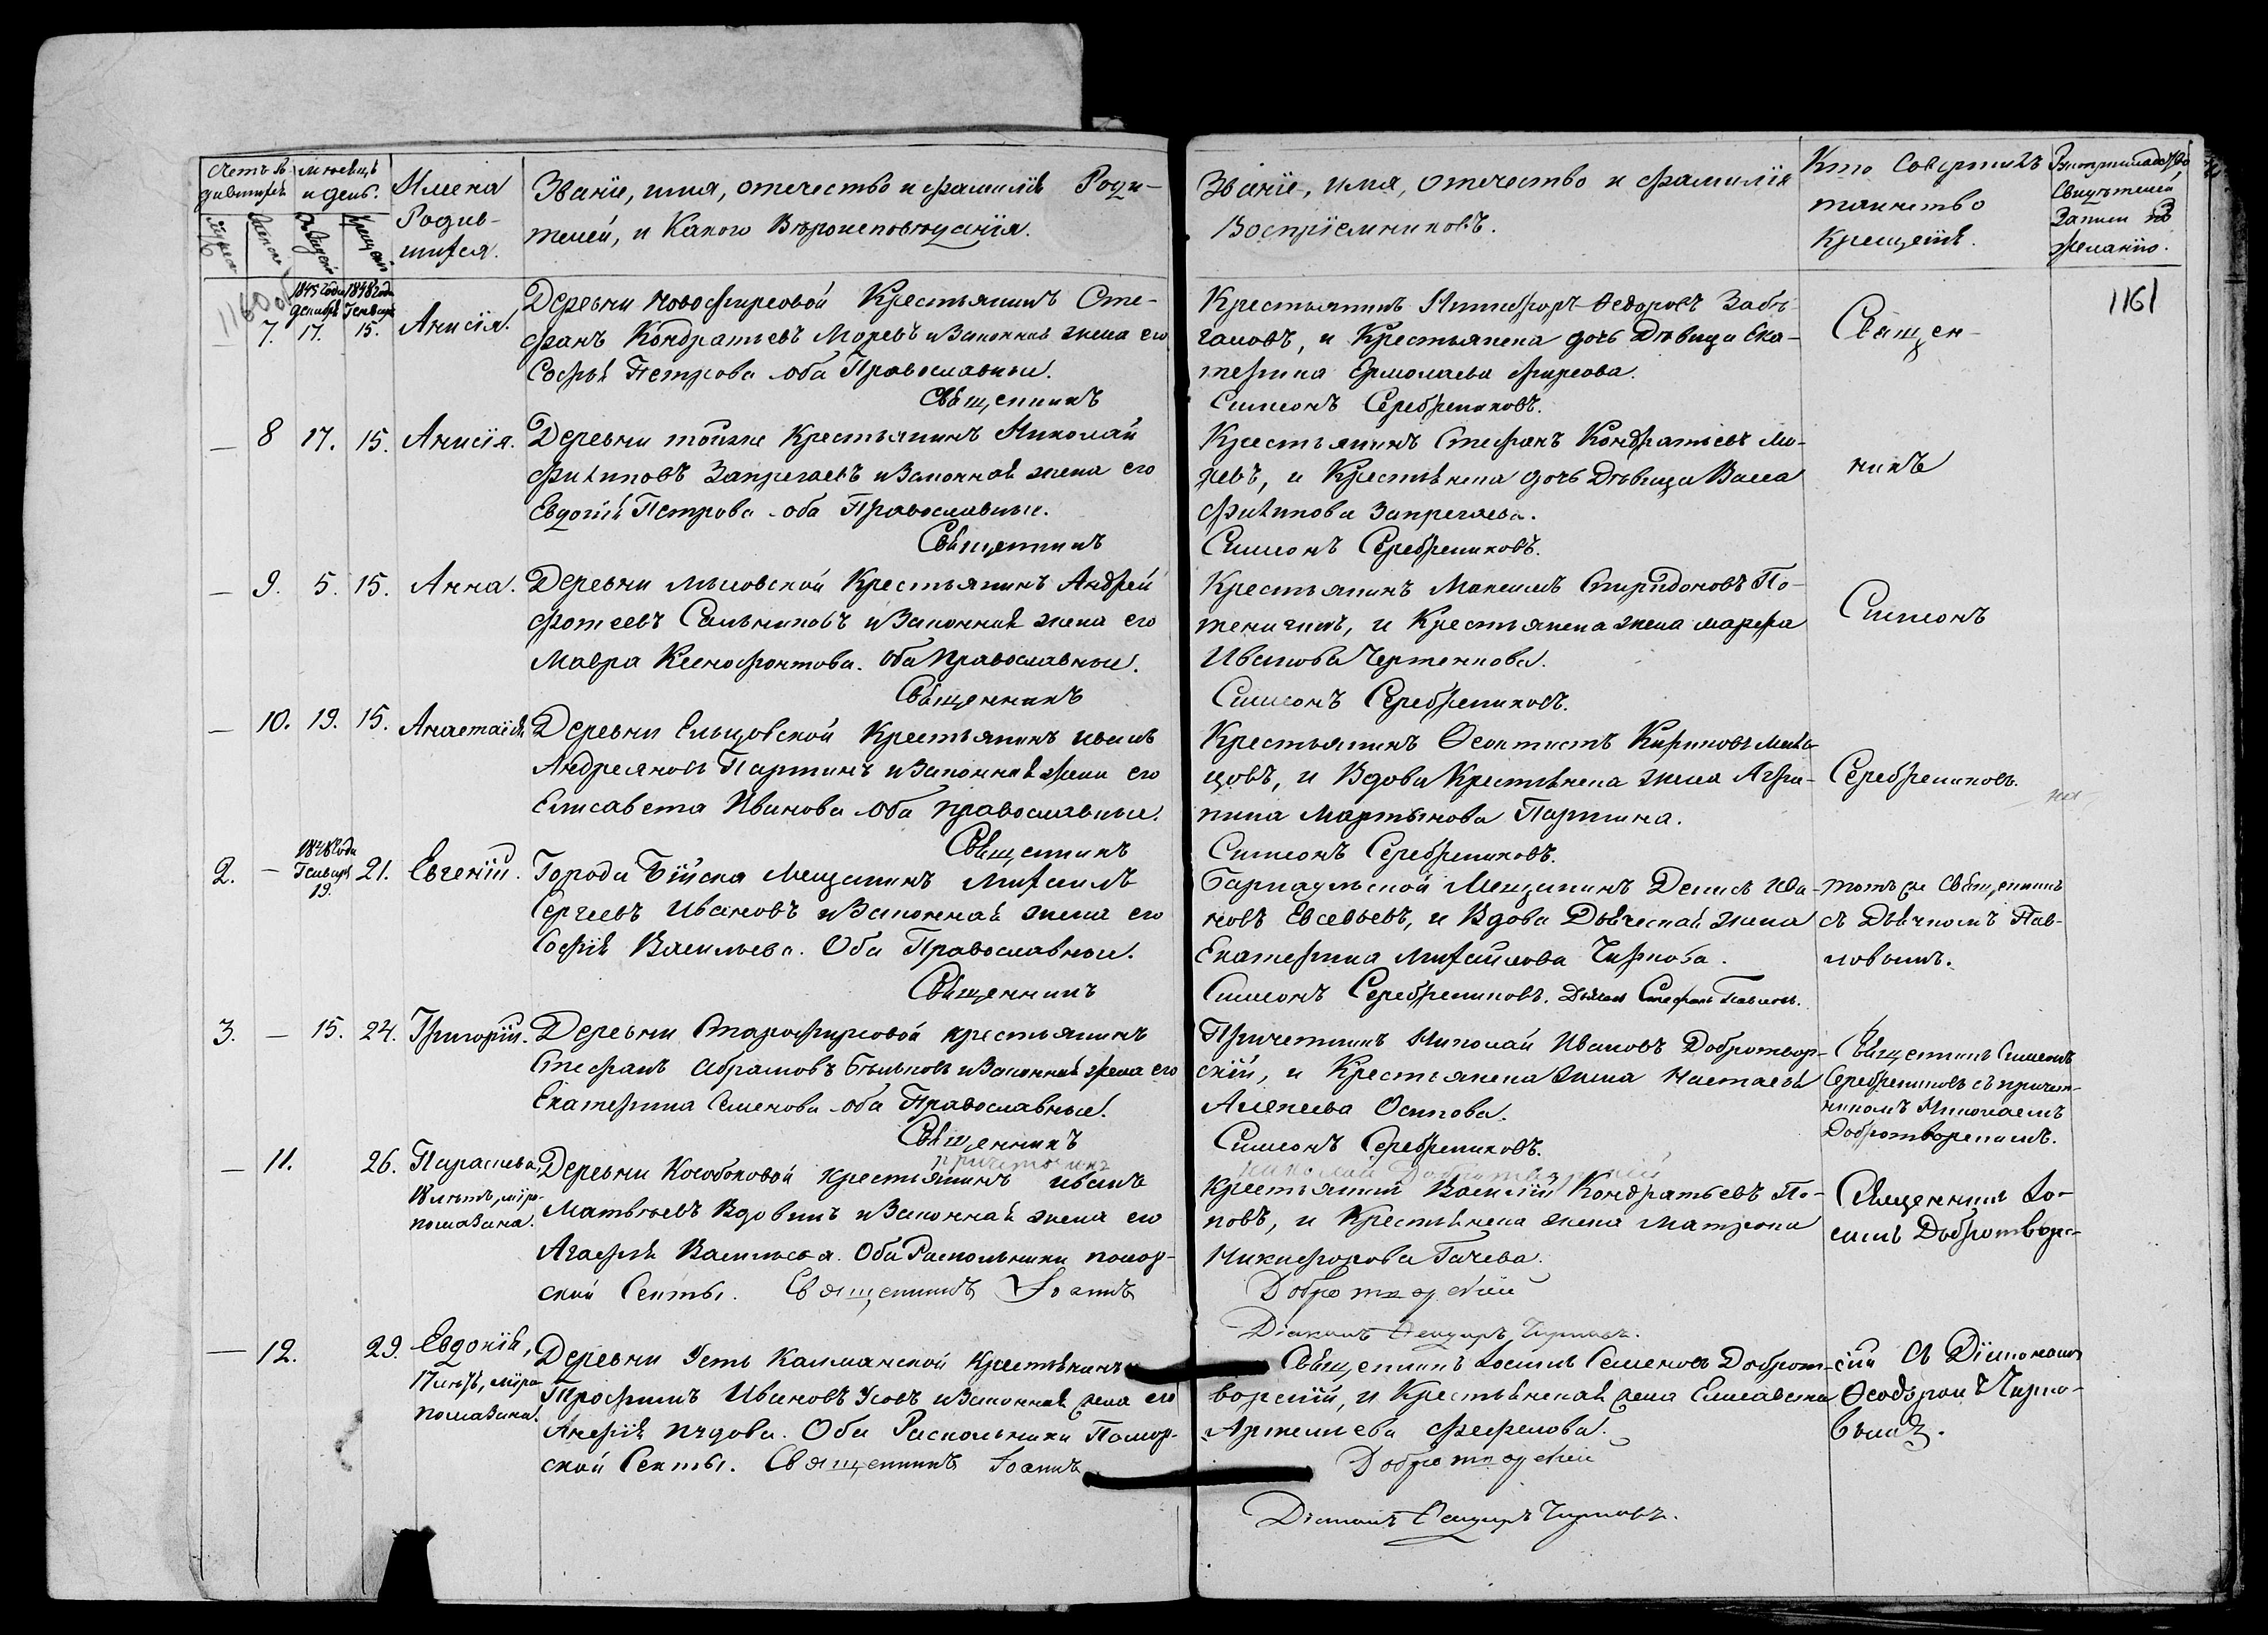 Счетъ родившихся
Мѣсяцъ и день.
Имена Родившихся.
Званіе, имя, отечество и фамилія Роди-
телей, и Какого Вѣроисповѣданія.
Званіе, имя, отечество и фамилія
Воспріемниковъ.
Кто совершилъ
таинство
Крещенія.
Свидѣтелей
Записи по
желанію.
1161
Генварь
7. 17. 15. Анисія. Деревни Новофирсовой Крестьянинъ Сте-
фанъ Кондратьевъ Моревъ и Законная жена его
Софья Петрова оба Православные.
Священникъ
Крестьянинъ Никифоръ Федоровъ
и Крестьянска дочь Дѣвица Ека-
терина Ермолаева Фирсова.
Симеонъ Серебрениковъ.
Священ-
— 8 17. 15. Анисія. Деревни тойже Крестьянинъ Николай
Филиповъ Запрегаевъ и Законная жена его
Евдокія Петрова оба Православные.
Священникъ
Крестьянинъ Стефанъ Кондратьевъ Мо-
ревъ, и Крестьянска дочь Дѣвица Васса
Филипова Запрегаева.
Симеонъ Серебрениковъ.
никъ
— 9. 5. 15. Анна. Деревни Мысовской Крестьянинъ Андрей
Фотеевъ Сальниковъ и Законная жена его
Мавра Ксенофонтова. Оба православные.
Священникъ
Крестьянинъ Максимъ Спиридоновъ
и Крестьянска жена Марфа
Иванова Чертенкова.
Симеонъ Серебрениковъ.
Симеонъ
— 10. 19. 15. Анастасія Деревни Ельцовской Крестьянинъ Иванъ
Андреяновъ Паршинъ и Законная жена его
Елисавета Иванова Оба православные.
Священникъ
Крестьянинъ Феоктистъ
и Вдова Крестьянска жена Агри-
пина Мартынова Паршина.
Симеонъ Серебрениковъ.
Серебрениковъ.
1848 Года
Генварь
2. — 19. 21. Евгеній. Города Бійска Мещанинъ Михаилъ
Сергеевъ Ивановъ и Законная жена его
Софія Васильева. Оба Православные.
Священникъ
Барнаульской Мещанинъ Денисъ Ива-
новъ Евсевьевъ, и Вдова Дьяческая жена
Екатерина Михайлова Чиркова.
Симеонъ Серебрениковъ. Дьячекъ Стефанъ Павловъ.
тотъ же Священникъ
съ Дьячкомъ Пав-
ловымъ.
3. — 15. 24. Григорій. Деревни Старофирсовой крестьянинъ
Стефанъ Абрамовъ Бѣльковъ и Законная жена его
Екатерина Семенова оба Православные.
Священникъ
Причетникъ Николай Ивановъ Добротвор-
скій, и Крестьянска жена Настасья
Алексеева Осипова.
Симеонъ Серебрениковъ.
Священникъ Симеонъ
Серебрениковъ съ причет-
никомъ Николаемъ
Добротворскимъ.
причетникъ
Николай Добротворскій
— 11. 26. Параскева,
18 лѣтъ, миро-
помазана.
Деревни Кособоковой Крестьянинъ Иванъ
Матвѣевъ Вдовинъ и Законная жена его
Агафья Васильева. Оба Раскольники помор-
ской Секты. Священникъ Іоаннъ
Крестьянинъ Василій Кондратьевъ По-
повъ, и Крестьянска жена Матрона
Никифорова Гачева.
Добротворскій
Діаконъ Феодоръ Чирковъ.
Священникъ Іо-
аннъ Добротвор-
— 12. 29. Евдокія,
17 лѣтъ, миро
помазана.
Деревни Усть Калманской Крестьянинъ
Трофимъ Ивановъ Усовъ и Законная жена его
Оба Раскольники Помор-
ской Секты. Священникъ Іоаннъ
Священникъ Іоаннъ Семеновъ Доброт-
ворскій, и Крестьянская жена Елисавета
Артемьева Фефелова.
Добротворскій
Діаконъ Феодоръ Чирковъ.
скій съ Діакономъ
Феодоромъ Чирко-
вымъ.